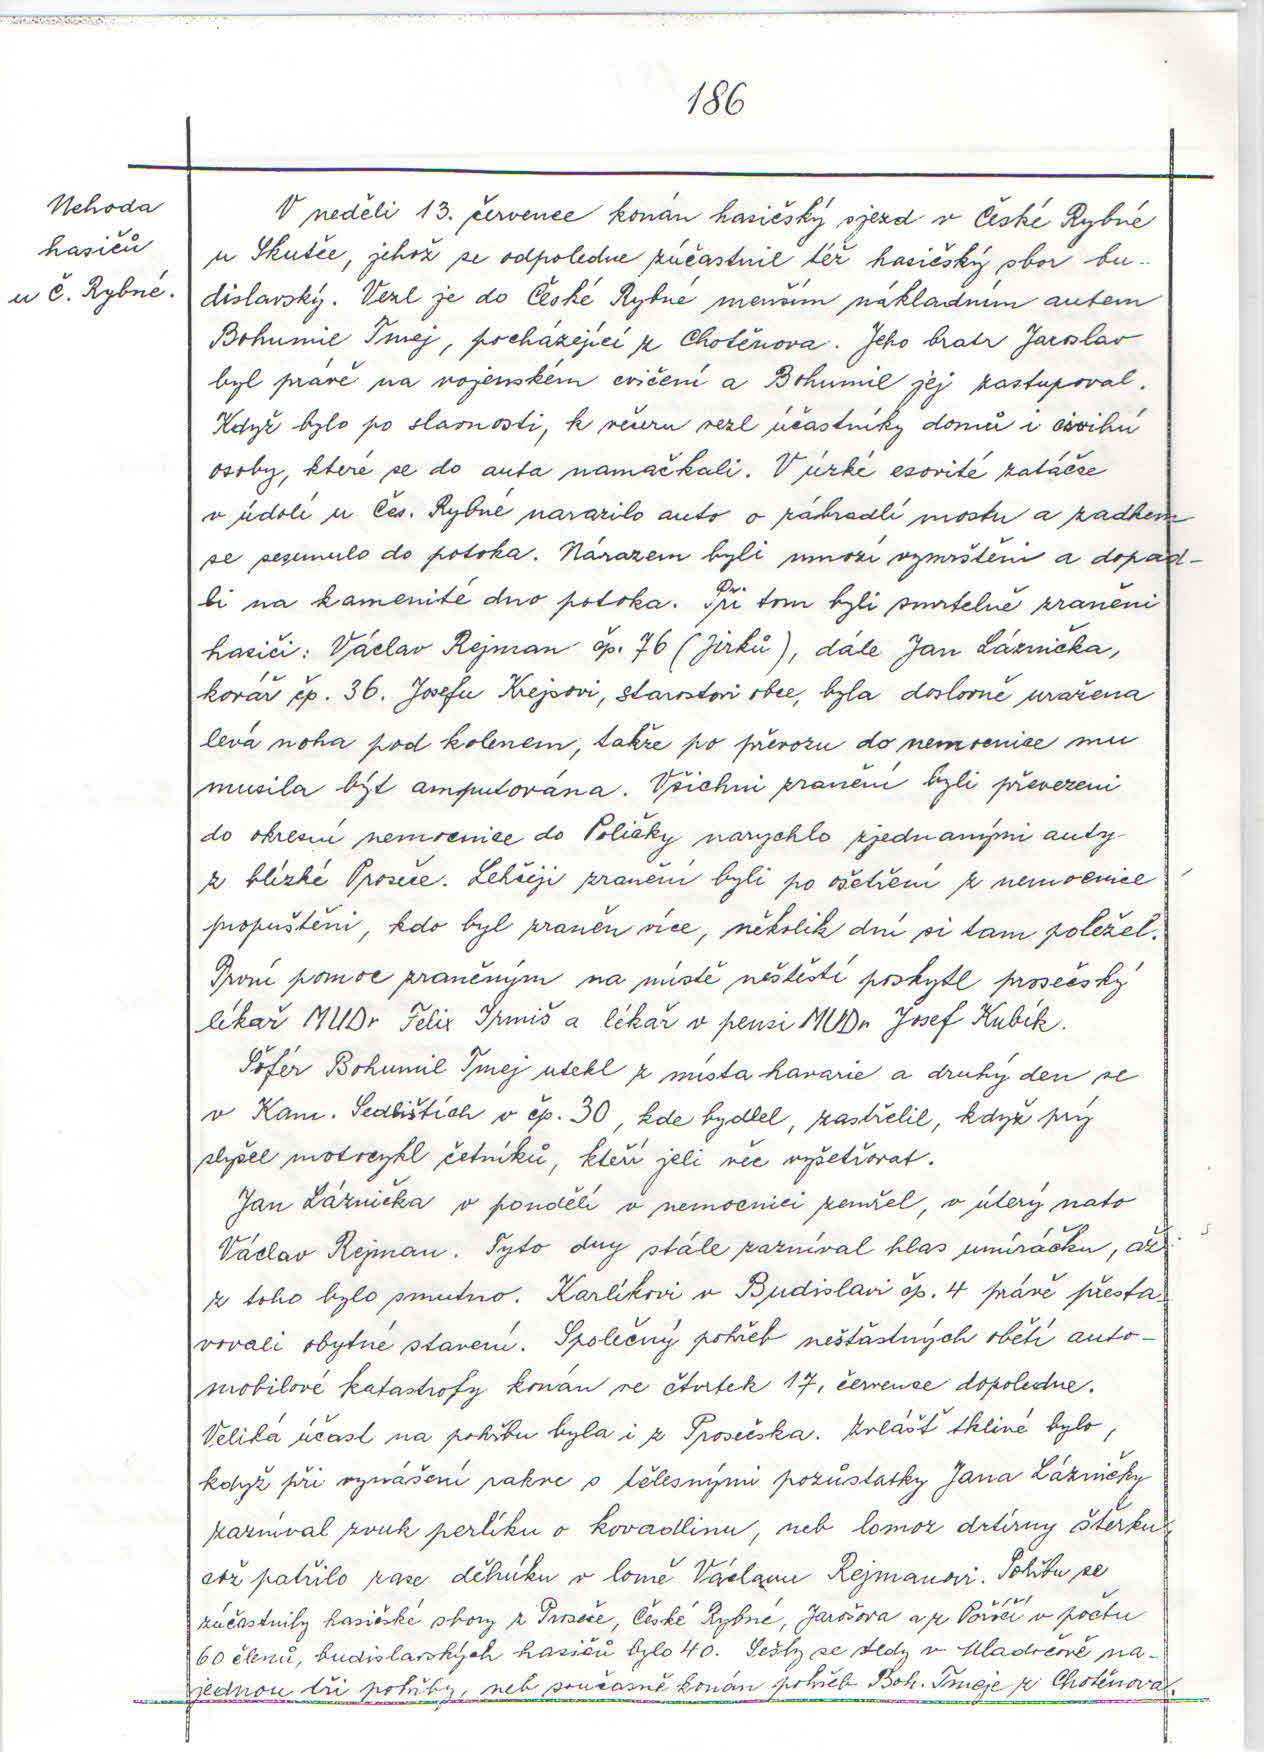 186
Nehoda
hasičů
u Č. Rybné.
V neděli 13. července konán hasičský sjezd v České Rybné
u Skutče, jehož se odpoledne zúčastnil též hasičský sbor bu-
dislavský. Vezl je do České Rybné menším nákladním autem
Bohumil Tmej, pocházející z Chotěnova. Jeho bratr Jaroslav
byl právě na vojenském cvičení a Bohumil jej zastupoval.
Když bylo po slavnosti, k večeru vezl účastníky domů i civilní
osoby, které se do auta namačkali. V úzké esovité zatáčce
v údolí u Čes. Rybné narazilo auto o zábradlí mostu a zadkem
se sesunulo do potoka. Nárazem byli mnozí vymrštěni a dopad-
li na kamenité dno potoka. Při tom byli smrtelně zraněni
hasiči: Václav Rejman čp. 76 (Jirků), dále Jan Láznička,
kovář čp. 36. Josefu Krejsovi, starostovi obce, byla doslovně uražena
levá noha pod kolenem, takže po převozu do nemocnice mu
musila být amputována. Všichni zranění byli převezeni
do okresní nemocnice do Poličky narychlo zjednanými auty
z blízké Proseče. Lehčeji zranění byli po ošetření z nemocnice
propuštěni, kdo byl zraněn více, několik dní si tam poležel.
První pomoc zraněným na místě neštěstí poskytl prosečský
lékař MUDr Felix Irmiš a lékař v pensi MUDr Josef Kubík.
Šofér Bohumil Tmej utekl z místa havarie a druhý den se
v Kam. Sedlištích v čp. 30, kde bydlel, zastřelil, když prý
slyšel motocykl četníků, kteří jeli věc vyšetřovat.
Jan Láznička v pondělí v nemocnici zemřel, v úterý nato
Václav Rejman. Tyto dny stále zazníval hlas umíráčku, až
z toho bylo smutno. Karlíkovi v Budislavi čp. 4 právě přesta-
vovali obytné stavení. Společný pohřeb nešťastných obětí auto-
mobilové katastrofy konán ve čtvrtek 17. července dopoledne.
Veliká účast na pohřbu byla i z Prosečska. Zvlášť tklivé bylo,
když při vynášení rakve s tělesnými pozůstatky Jana Lázničky
zazníval zvuk perlíku o kovadlinu, neb lomoz drtírny štěrku,
což patřilo zase dělníku v lomě Václavu Rejmanovi. Pohřbu se
zúčastnily hasičské sbory z Proseče, České Rybné, Jarošova a z Poříčí v počtu
60 členů, budislavských hasičů bylo 40. Sešly se tedy v Mladočově na-
jednou tři pohřby, neb současně konán pohřeb Boh. Tmeje z Chotěnova.